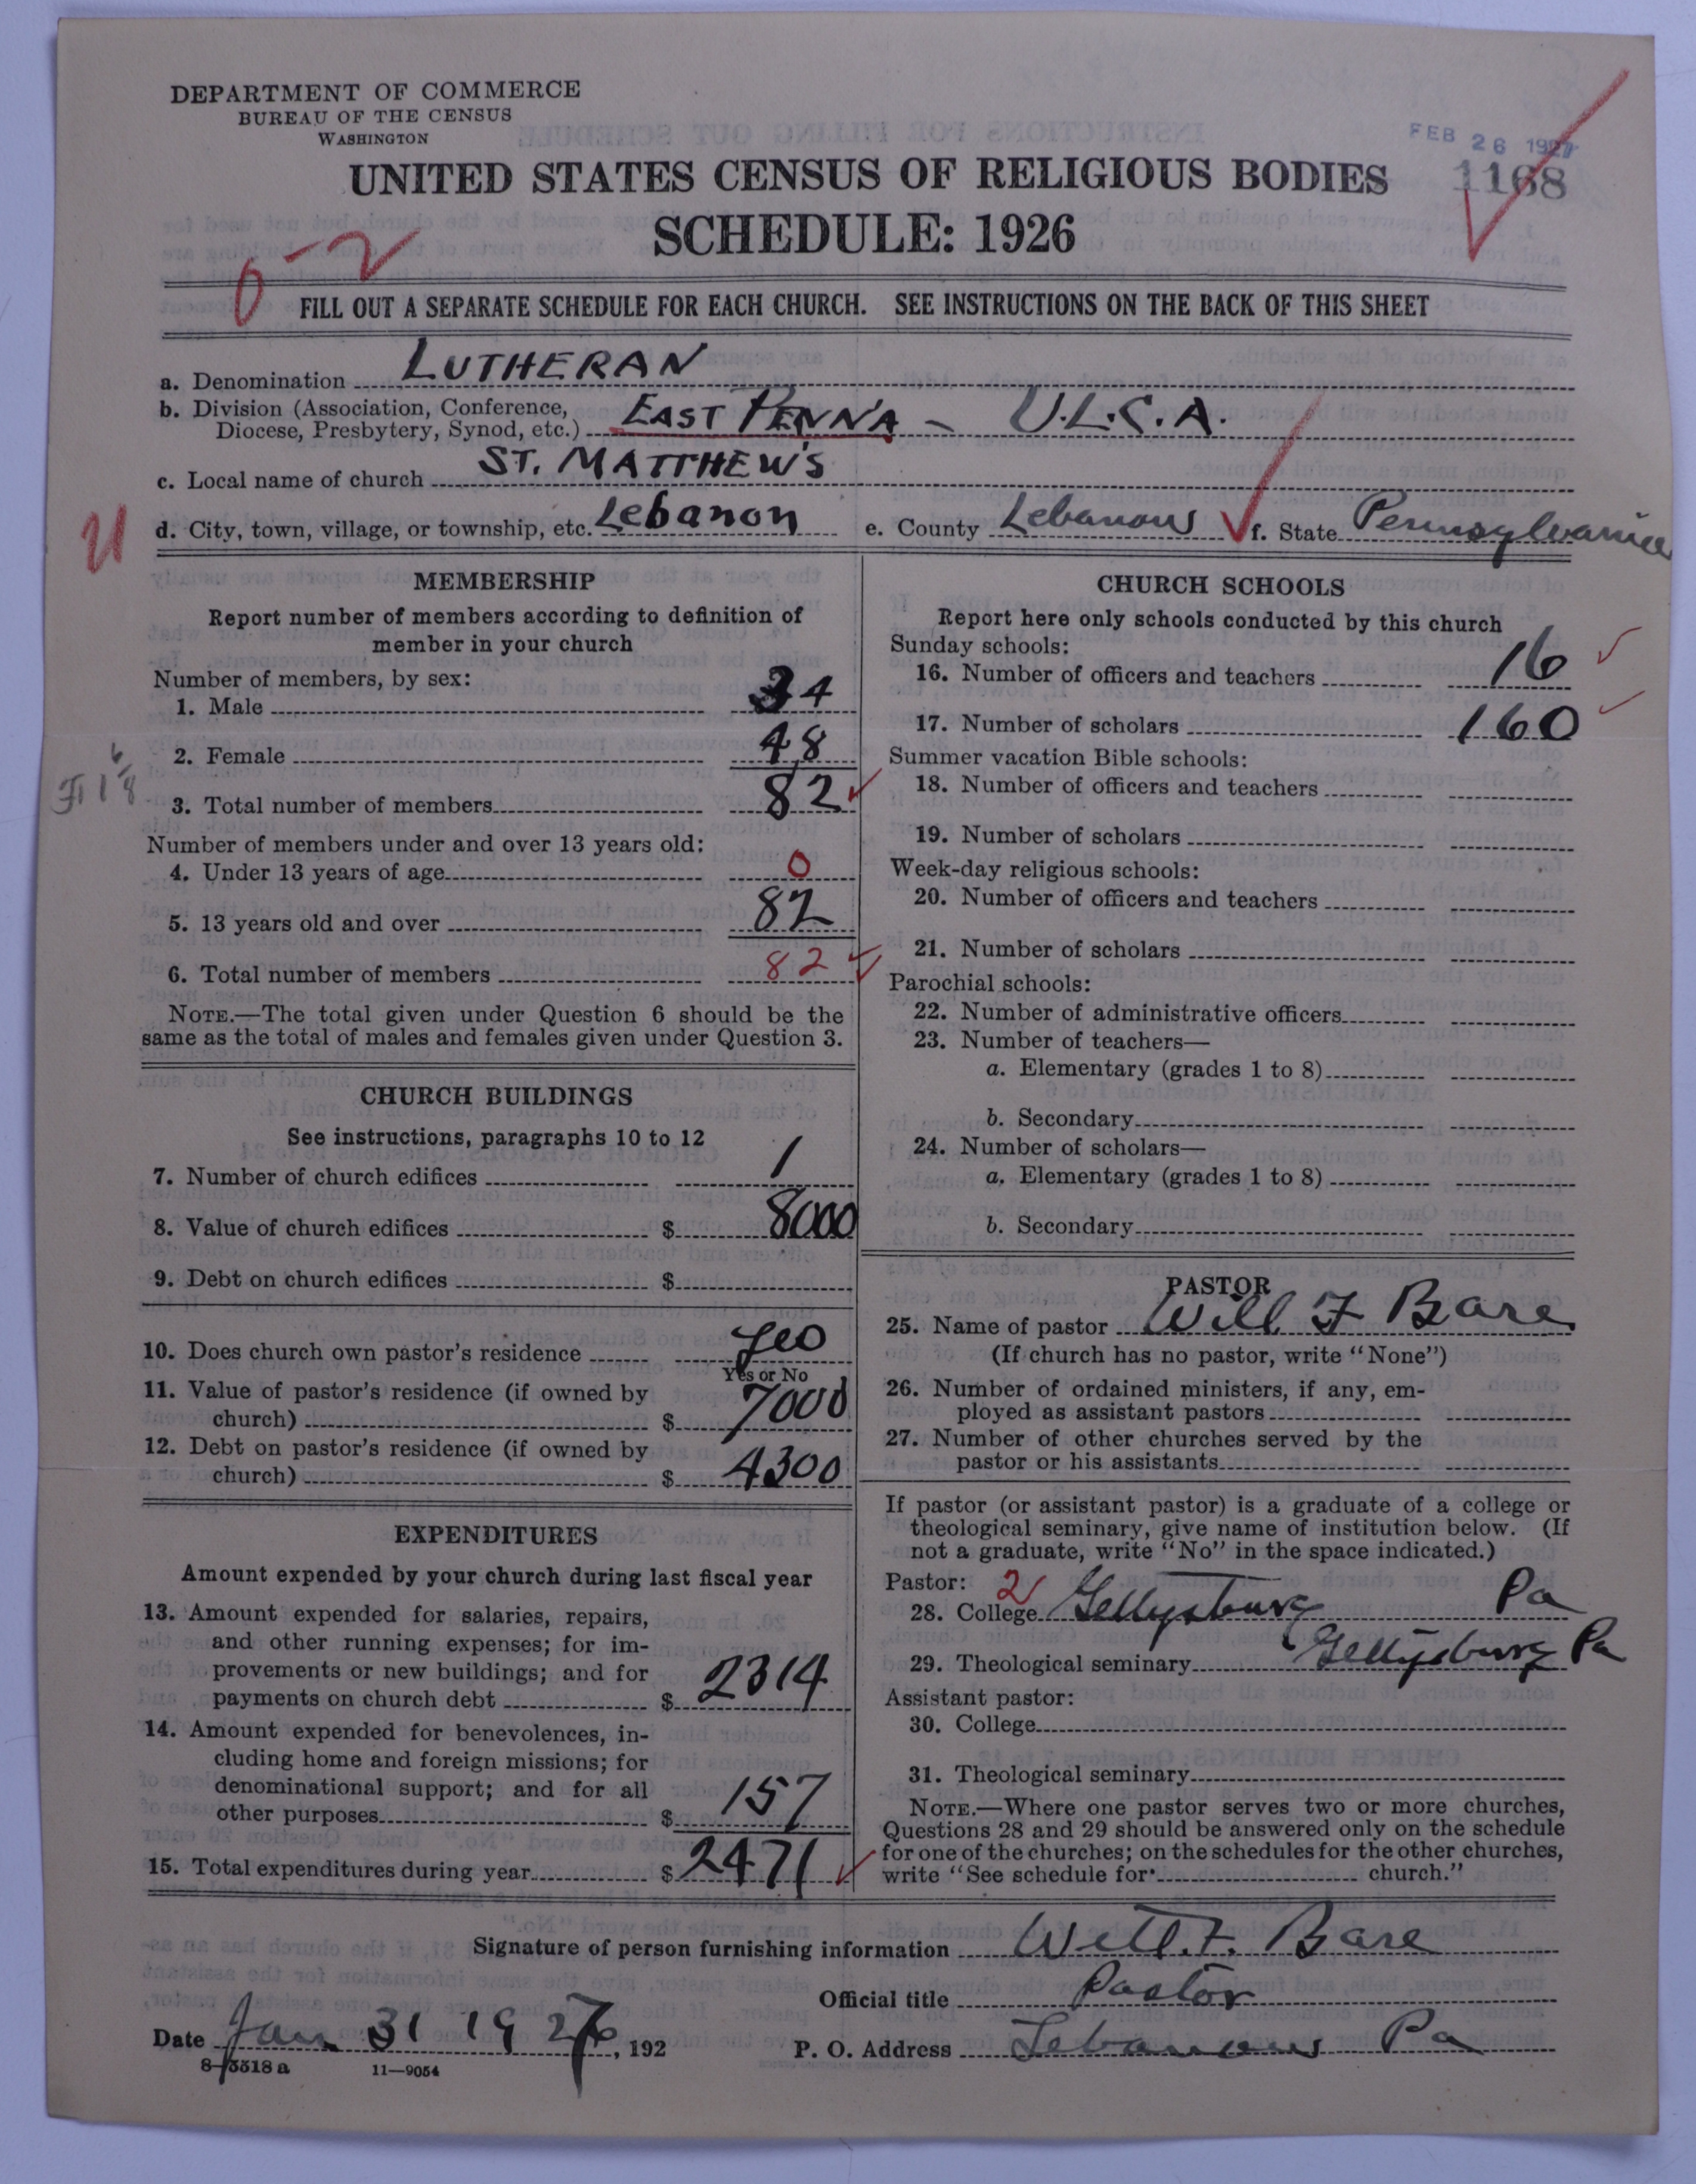 DEPARTMENT OF COMMERCE
BUREAU OF THE CENSUS
WASHINGTON
FEB 26 1927
1168
UNITED STATES CENSUS OF RELIGIOUS BODIES
SCHEDULE: 1926
0-2
FILL OUT A SEPARATE SCHEDULE FOR EACH CHURCH. SEE INSTRUCTIONS ON THE BACK OF THIS SHEET
a. Denomination LUTHERAN
b. Division (Association, Conference,
Diocese, Presbytery, Synod, etc.) EAST PENN'A - U.L.C.A.
c. Local name of church ST. MATTHEW'S
d. City, town, village, or township, etc. Lebanon e. County Lebanon f. State Pennsylvania
MEMBERSHIP
Report number of members according to definition of
member in your church
Number of members, by sex:
1. Male 34
2. Female 48
3. Total number of members 82
Number of members under and over 13 years old:
4. Under 13 years of age 0
5. 13 years old and over 82
6. Total number of members 82
NOTE.—The total given under Question 6 should be the
same as the total of males and females given under Question 3.
CHURCH BUILDINGS
See instructions, paragraphs 10 to 12
7. Number of church edifices 1
8. Value of church edifices $ 8000
9. Debt on church edifices $
10. Does church own pastor's residence yes
Yes or No
11. Value of pastor's residence (if owned by
church) $ 7000
12. Debt on pastor's residence (if owned by
church) $ 4300
EXPENDITURES
Amount expended by your church during last fiscal year
13. Amount expended for salaries, repairs,
and other running expenses; for im-
provements or new buildings; and for
payments on church debt $ 2314
14. Amount expended for benevolences, in-
cluding home and foreign missions; for
denominational support; and for all
other purposes $ 157
15. Total expenditures during year $ 2471
CHURCH SCHOOLS
Report here only schools conducted by this church
Sunday schools:
16. Number of officers and teachers 16
17. Number of scholars 160
Summer vacation Bible schools:
18. Number of officers and teachers
19. Number of scholars
Week-day religious schools:
20. Number of officers and teachers
21. Number of scholars
Parochial schools:
22. Number of administrative officers
23. Number of teachers—
a. Elementary (grades 1 to 8)
b. Secondary
24. Number of scholars—
a. Elementary (grades 1 to 8)
b. Secondary
PASTOR
25. Name of pastor Will F Bare
(If church has no pastor, write "None")
26. Number of ordained ministers, if any, em-
ployed as assistant pastors
27. Number of other churches served by the
pastor or his assistants
If pastor (or assistant pastor) is a graduate of a college or
theological seminary, give name of institution below. (If
not a graduate, write "No" in the space indicated.)
Pastor: 2
28. College Gettysburg Pa
29. Theological seminary Gettysburg Pa
Assistant pastor:
30. College
31. Theological seminary
NOTE.—Where one pastor serves two or more churches,
Questions 28 and 29 should be answered only on the schedule
for one of the churches; on the schedules for the other churches,
write "See schedule for church."
Signature of person furnishing information Will. F. Bare
Official title Pastor
Date Jan 31 1927, 192
P. O. Address Lebanon Pa
8-5518 a 11—9054